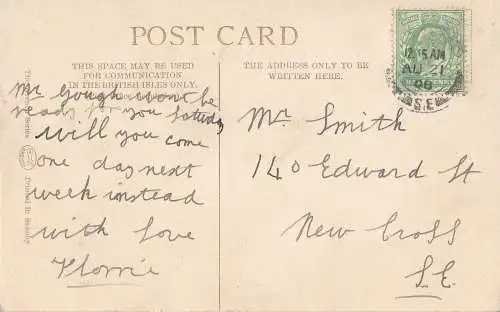 POST CARD
THIS SPACE MAY BE USED
FOR COMMUNICATION
IN THE BRITISH ISLES ONLY.
THE ADDRESS ONLY TO BE
WRITTEN HERE.
Mr Gough wont be
ready for you Saturday
will you come
one day next
week instead
with love
Florrie
Mrs Smith
140 Edward St
New Cross
S.E.
12.15 AM
AU 21
08
S.E